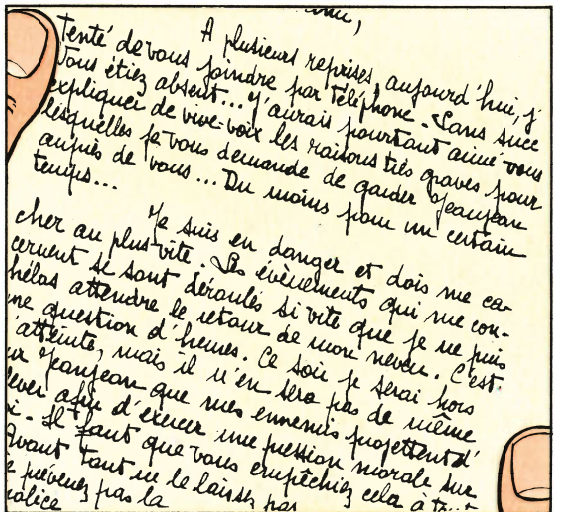 A plusieurs reprises, aujourd'hui, j'
tenté de vous joindre par téléphone. Sans succ
Vous étiez absent... J'aurais pourtant aimé vous
expliquer de vive-voix les raisons très graves pour
lesquelles je vous demande de garder Jeanjean
auprès de vous... Du moins pour un certain
temps...
Je suis en danger et dois me ca-
cher au plus vite. Les évènements qui me con-
cernent se sont déroulés si vite que je ne puis
hélas attendre le retour de mon neveu. C'est
ne question d'heures. Ce soir je serai hors
'atteinte, mais il n'en sera pas de même
ur Jeanjean que mes ennemis projettent d'
lever afin d'exercer une pression morale sur
oi. Il faut que vous empêchiez cela à tout
Avant tout ne le laissez pas
e prévenez pas la
police